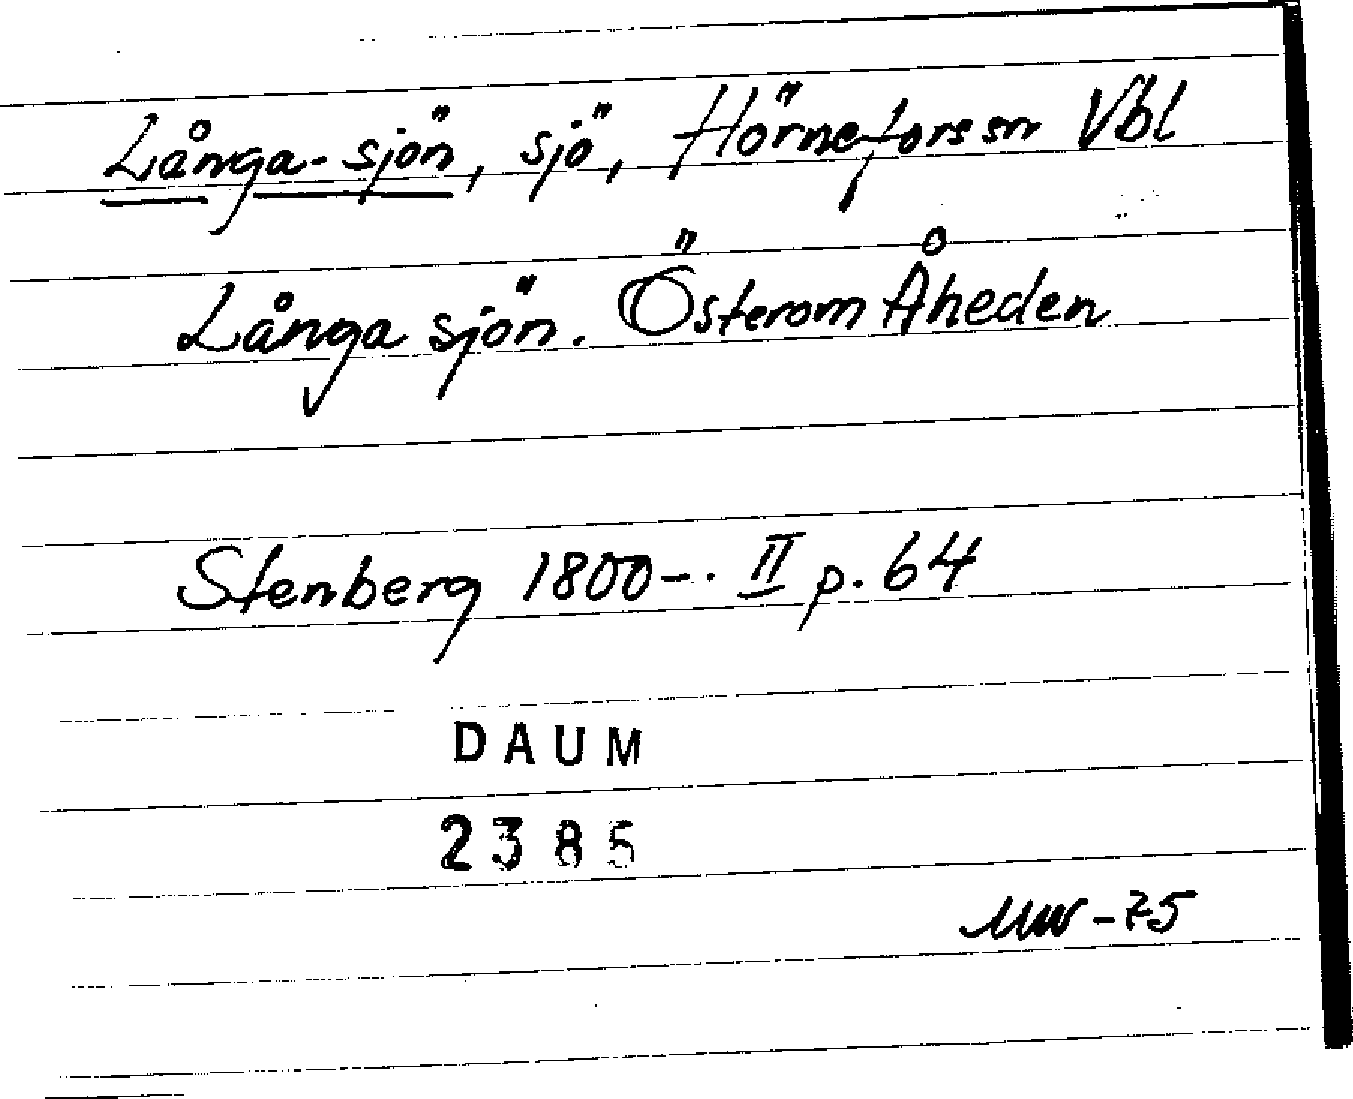 Långa-sjön, sjö, Hörnefors sn Vbl
Långa sjön. Österom Åheden
Stenberg 1800-. II p. 64
DAUM
2385
MW-75